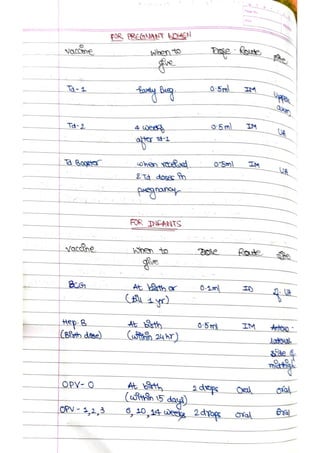 FOR PREGNANT WOMEN
vaccine When to give Dose Route site
Td-1 Early Preg 0.5ml IM Upper arm
Td-2 4 weeks after Td-1 0.5ml IM UA
Td Booster when received 2 Td doses in pregnancy 0.5ml IM UA
FOR INFANTS
vaccine When to give Dose Route site
BCG At birth or (till 1 yr) 0.1ml ID UA
Hep B (Birth dose) At birth (within 24hr) 0.5ml IM side of midthigh
OPV - 0 At birth (within 15 days) 2 drops Oral oral
OPV - 1,2,3 6, 10, 14 weeks 2 drops oral Oral